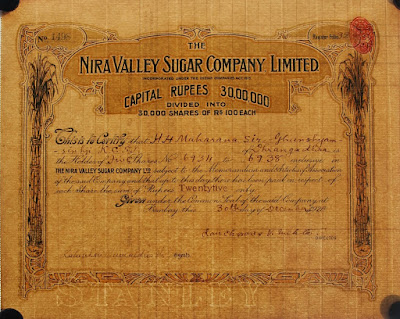 No. 1498
Register Folio
THE
NIRA VALLEY SUGAR COMPANY LIMITED
INCORPORATED UNDER THE INDIAN COMPANIES ACT
CAPITAL RUPEES 30,00,000
DIVIDED INTO
30,000 SHARES OF RS 100 EACH
This is to Certify that H.H. Maharaja Sir Ghanshyam
of Dhrangadhra is
the Holder of Five Shares No 6934 to 6938 inclusive in
THE NIRA VALLEY SUGAR COMPANY LTD subject to the Memorandum and Articles of Association
of the said Company and that up to this day there has been paid in respect of
each Share the sum of Rupees Twentyfive only
Given under the Common Seal of the said Company at
Bombay this 30th day of December
Agents
STANLEY